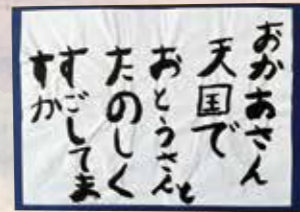 おかあさん
天国で
おとうさんと
たのしく
すごしてま
すか